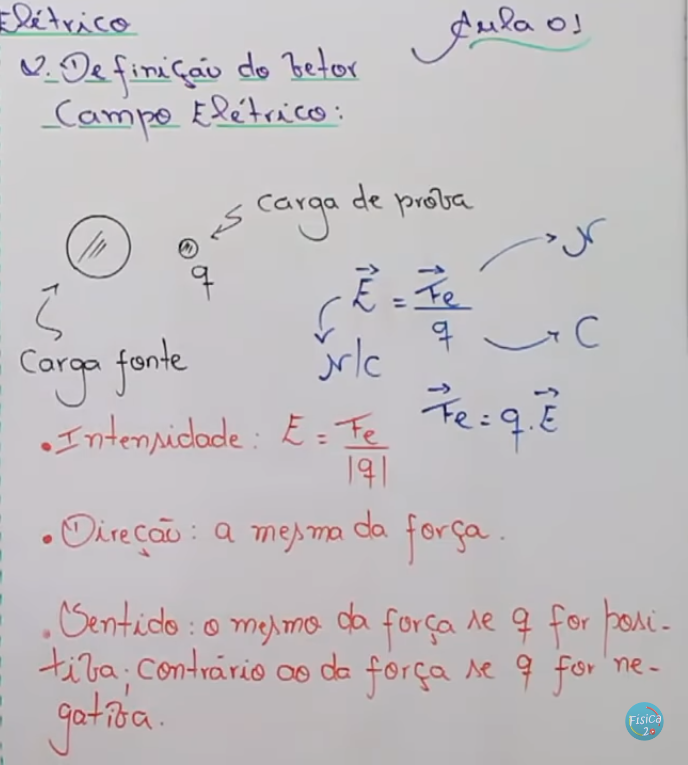 Elétrico
Aula 01
2. Definição do vetor
Campo Elétrico:
Carga de prova
q
Carga fonte
E = Fe/q
N
C
N/C
Fe = q.E
• Intensidade: E = Fe/|q|
• Direção: a mesma da força.
• Sentido: o mesmo da força se q for posi-
tiva; contrário ao da força se q for ne-
gativa.
Física
2